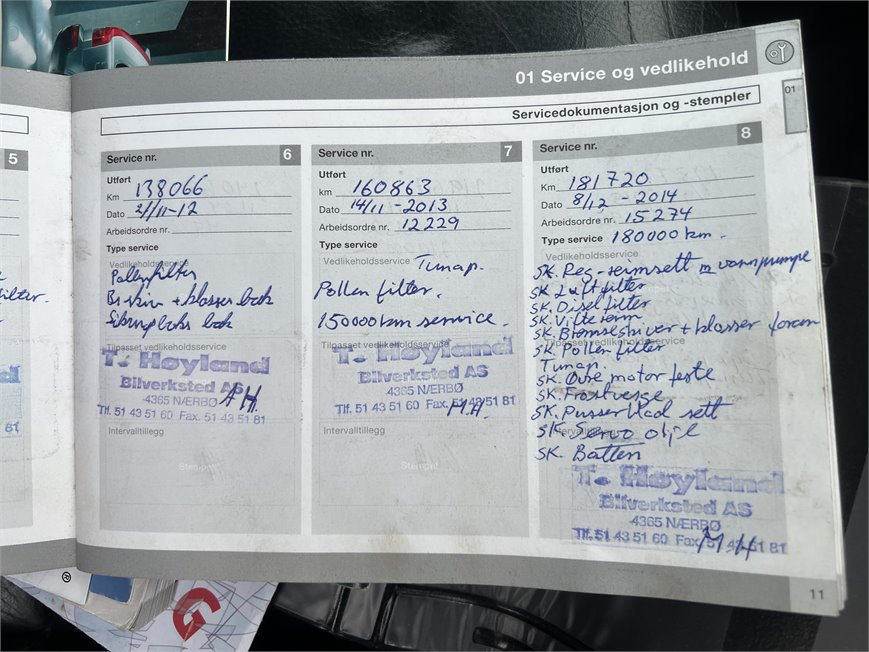 01 Service og vedlikehold
01
Servicedokumentasjon og -stempler
5
filter.
Service nr. 6
Utført
Km 138066
Dato 21/11-12
Arbeidsordre nr.
Type service
Vedlikeholdsservice
Pollenfilter
+ klosser bak
bak
Tilpasset vedlikeholdsservice
T. Høyland
Bilverksted AS
4365 NÆRBØ
Tlf. 51 43 51 60 Fax. 51 43 51 81
AH.
Intervalltillegg
Stempel
Service nr. 7
Utført
km 160863
Dato 14/11-2013
Arbeidsordre nr. 12229
Type service
Vedlikeholdsservice
Tunap.
Pollen filter.
150000 km service.
Tilpasset vedlikeholdsservice
T. Høyland
Bilverksted AS
4365 NÆRBØ
Tlf. 51 43 51 60 Fax. 51 43 51 81
M.H.
Intervalltillegg
Stempel
Service nr. 8
Utført
Km 181720
Dato 8/12-2014
Arbeidsordre nr. 15274
Type service 180000 km.
Vedlikeholdsservice
SK. Reg-reimsett m vannpumpe
SK. Luftfilter
SK. Disel filter
SK. Vifterem
SK. Bremseskiver + klosser foran
SK. Pollen filter
Tunap.
SK. Øvre motor feste
SK. Frostvesge
SK. Pusserblad sett
SK. Servo olje
SK. Batteri
T. Høyland
Bilverksted AS
4365 NÆRBØ
Tlf. 51 43 51 60 Fax. 51 43 51 81
M H
11